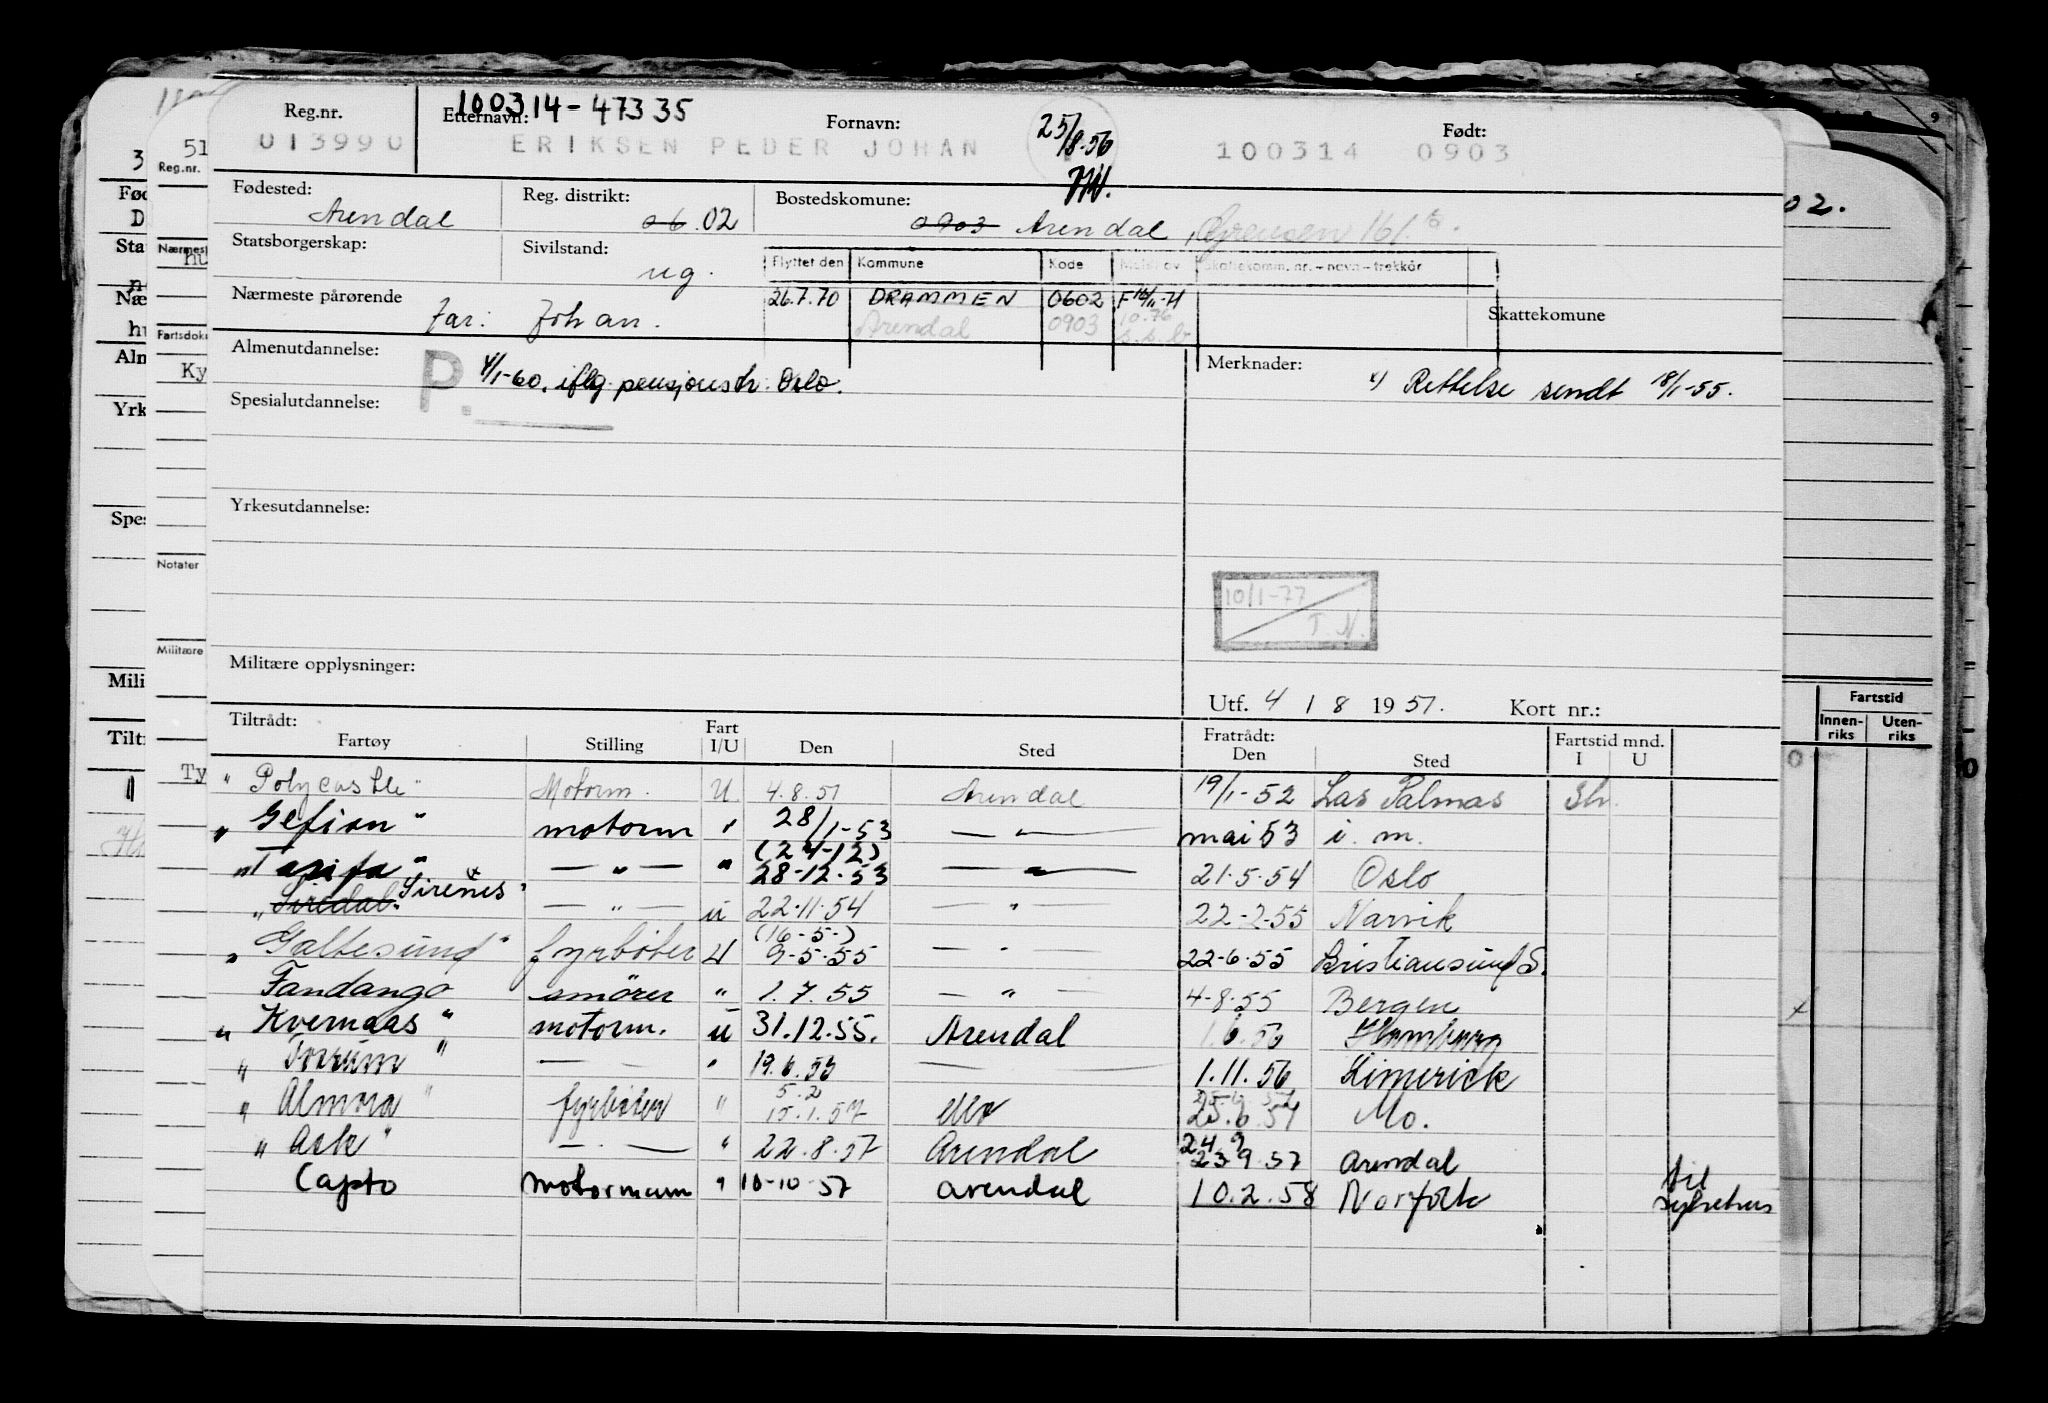 100314-47335
Reg.nr. Etternavn: Fornavn: 25/8-56 Født:
013990 ERIKSEN PEDER JOHAN 100314 0903
Fødested: Reg. distrikt: Bostedskomune:
Arendal 06.02 0903 Arendal
Statsborgerskap: Sivilstand: ug.
Flyttet den Kommune Kode Meldt av Skattekomm. nr. – navn – trekkår
Nærmeste pårørende Far: Johan.
26.7.70 DRAMMEN 0602
Arendal 0903 10.76
Skattekomune
Almenutdannelse: P. 4/1-60, iflg. pensjonstr. Oslo.
Merknader: x) Rettelse sendt 18/1-55.
Spesialutdannelse:
Yrkesutdannelse:
10/1-77
T N.
Militære opplysninger:
Utf. 4 / 8 1951. Kort nr.:
Tiltrådt: Fratrådt: Fartstid mnd.
Fartøy Stilling Fart I/U Den Sted Den Sted I U
" Polycastle " Motorm. U. 4.8.51 Arendal 19/1-52 Las Palmas
" Gefion " motorm " 28/1-53 — " — mai 53 i. m.
(27-12)
" Tarifa " — " — " 28-12-53 — " — 21.5.54 Oslo
" Siredal Sirenes x " — " — u 22.11.54 — " — 22-2-55 Narvik
(16-5-)
" Galtesund " fyrbøter U 9-5-55 — " — 22-6-55 Kristiansund S.
Fandango smører " 1.7.55 — " — 4-8-55 Bergen
" Kvernaas " motorm. u 31.12.55. Arendal 1.6.56 Hamburg
" Torrum " — — " — 1.11.56 Limerick
5.2
" Almora " fyrbøter " 15.1.57 Mo 25.6.57 Mo.
24 9
" Ask " — " — " 22.8.57 Arendal 23 9.57 Arendal
Capto motormann " 10-10-57 Arendal 10.2.58 Norfolk til sykehus
Reg.nr.
Notater
Fartstid
Innen-riks Uten-riks